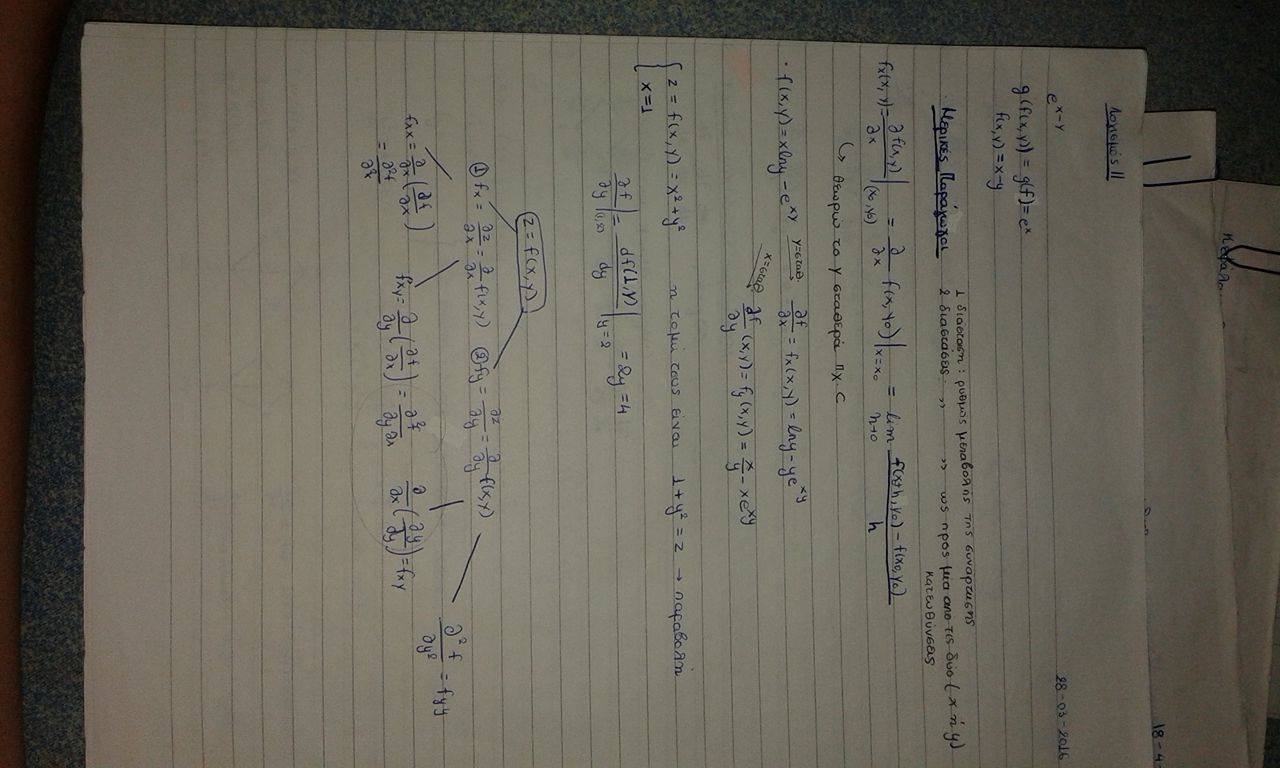 Λογισμός II
28-03-2016
e^{x-y}
g(f(x,y)) = g(f) = e^x
f(x,y) = x-y
Μερικές Παράγωγοι
1 διάσταση: ρυθμός μεταβολής της συνάρτησης
2 διαστάσεις: >> >> ως προς μία από τις δύο (x ή y) κατευθύνσεις
fx(x,y) = ∂f(x,y)/∂x |(x₀,y₀) = ∂/∂x f(x,y₀) |x=x₀ = lim h→0 f(x+h,y₀) - f(x₀,y₀) / h
↳ θεωρώ το y σταθερά πχ c
· f(x,y) = xlny - e^{xy} y=σταθ. → ∂f/∂x = fx(x,y) = lny - ye^{xy}
x=σταθ. → ∂f/∂y (x,y) = fy(x,y) = x/y - xe^{xy}
{ z = f(x,y) = x²+y² η τομή τους είναι 1+y² = z → παραβολή
x=1
∂f/∂y | = df(1,y)/dy |y=2 = 2y = 4
z = f(x,y)
① fx = ∂z/∂x = ∂/∂x f(x,y) ② fy = ∂z/∂y = ∂/∂y f(x,y)
fxx = ∂/∂x (∂f/∂x) fxy = ∂/∂y (∂f/∂x) = ∂²f/∂y∂x ∂/∂x (∂y/∂y) = fxy ∂²f/∂y² = fyy
= ∂²f/∂²x
18-4-